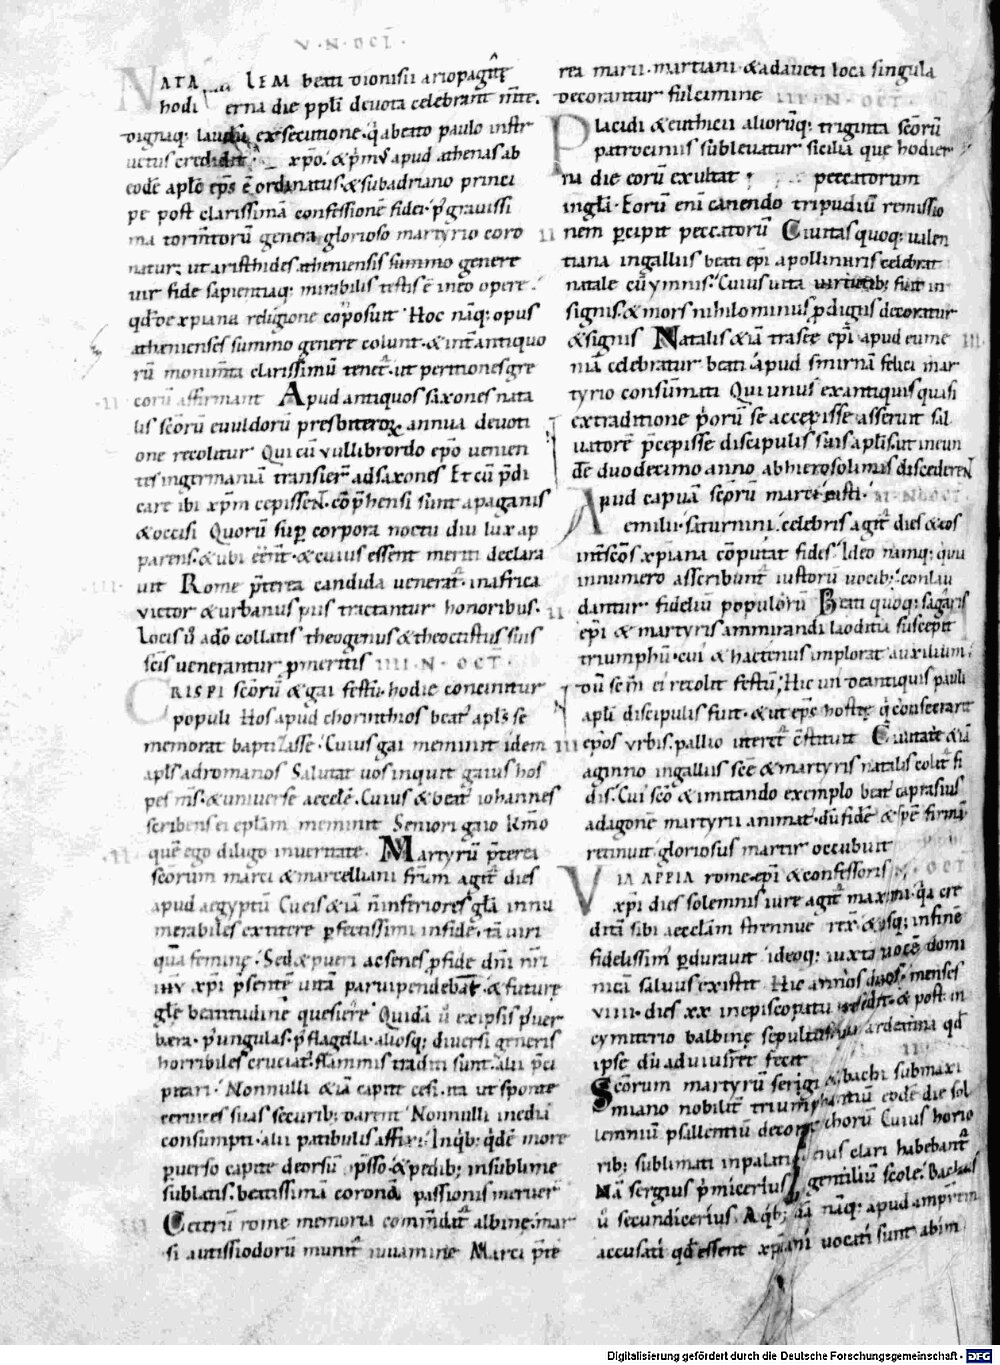 V · N · OCT ·
NATALEM beati dionisii ariopagitę
hodierna die ppli deuota celebrant mte.
dignaq; laudū exsecutione. qͥ a beato paulo instr
uctus credidit xpo. & pͥmus apud athenas ab
eodē aplo eps ē ordinatus. & sub adriano princi
pe post clarissimā confessionē fidei. pͬ grauissi
ma tormtorū genera glorioso martyrio coro
natur; ut aristhides atheniensis summo genere
uir fide sapientiaq; mirabilis testis ē in eo opere.
qd de xpiana religione cōposuit. Hoc nāq; opus
athenienses summo genere colunt. & int antiquo
rū monimta clarissimū tenet. ut peritiores gre
corū affirmant Apud antiquos saxones nata
lis scōrū euuldorū presbiterorū annua deuoti
one recolitur Qui cū vullibrordo epo uenien
tes in germaniā transier ad saxones Et cū pͬdi
care ibi xpm cepissent. cōpͬhensi sunt a paganis
& occisi Quorū sup corpora noctu diu lux ap
parens. & ubi eēnt. & cuius essent meriti declara
uit Rome pͬterea candida uenerat. in africa
victor & urbanus piis tractantur honoribus.
Locis ū ado collatis theogenus & theoctistus suis
scis uenerantur p meritis IIII · N · OCT ·
CRISPI scōrū & gai festū. hodie concinitur
populi Hos apud chorinthios beat apls se
memorat baptizasse. Cuius gai meminit idem
apls ad romanos Salutat uos inquit gaius hos
pes ms. & uniuerse aecclę. Cuius & beat iohannes
scribens ei eplam meminit Seniori gaio kmo
quē ego diligo in ueritate. Martyrū pͬterea
scōrum marci & marcelliani frm agit dies
apud aegyptū Cū eis & iā n inferiores glā innu
merabiles extitere perfectissimi in fide. tā uiri
quā feminę. Sed & pueri ac senes p fide dni nri
ihu xpi psentē uitā paruipendebāt. & futurę
glę beatitudinē quesiere Quidā ū ex ipsis pͬ uer
bera. pͬ ungulas. pͬ flagella. aliosq; diuersi generis
horribiles cruciat. flammis traditi sunt. alii pͬci
pitati. Nonnulli & iā capite cesi. ita ut sponte
ceruices suas securib; darent Nonnulli inediā
consumpti. alii patibulis affixi. In qͥb; qdē more
peruerso capite deorsū psso. & pedib; in sublime
sublatis. beatissimā coronā passionis meruer
Ceterū rome memoria commdit albinę. mar
si autissiodorū munit iuuamine Marci pͬte
rea marii. martiani & adaucti loca singula
decorantur fulcimine III · N · OCT ·
Placidi & euthicii aliorūq; triginta scōrū
patrociniis subleuatur sicilia que hodier
na die eorū exultat peccatorum
in glā. Eorū eni canendo tripudiū remissio
nem pcipit peccatorū Ciuitas quoq; ualen
tiana in galliis beati epi apollinaris celebrat
natale cū ymnis. Cuius uita uirtutib; fuit in
signis. & mors nihilominus pdigiis decoratur
& signis Natalis & iā trasee epi apud eume
niā celebratur beati. apud smirnā felici mar
tyrio consūmati Qui unus ex antiquis quasi
ex traditione pͥorū se accepisse asseruit sal
uatorē pͬcepisse discipulis suis aplis. ut ne un
dē duodecimo anno ab hierosolimis discederent
Apud capuā scōrū marci casti. II · N · OCT ·
emili. saturnini. celebris agit dies & eos
int scos xpiana cōputat fides. Ideo namq; qui
innumero asscribunt iustorū uocib; conlau
dantur fideliū populorū Beati quoq; sagaris
epi & martyris ammirandi laoditia suscepit
triumphū. cui & hactenus implorat auxilium
dū semp ei recolit festū; Hic un de antiquis pauli
apli discipulis fuit. & ut eps hostię qͥ consecrarit
epos urbis. pallio uteret cstituit Ciuitate & iā
aginno in galliis scē & martyris natalis colit fi
dis. Cui scō & imitando exemplo beat caprasius
ad agonē martyrii animat. dū fidē & spē firmā
retinuit. gloriosus martir occubuit
VIA APPIA rome. epi & confessoris N · OCT
xpi dies solemnis iure agit maximi. qͥa cre
ditā sibi aecclam strennue rex. & usq; in finē
fidelissim pdurauit ideoq; iuxta uocē domi
nicā saluus existit Hic annos duos. menses
VIIII. dies XX in episcopatu resedit. & post in
cymiterio balbinę sepultus uia ardeatina qd
ipse dū aduiueret fecit
Scōrum martyrū sergi & bachi sub maxi
miano nobilit triumphantiū eodē die sol
lemniū psallentiū decorat chorū Cuius horio
rib; sublimati in palatio eius clari habebant
Nā sergius pͥmicerius gentiliū scole. Bachus
ū secundicerius. A qͥb; dā nāq; apud impatorem
accusati qd essent xpiani uocati sunt ab im